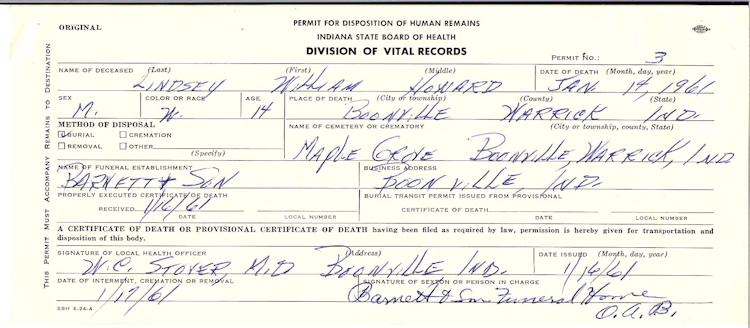 ORIGINAL
PERMIT FOR DISPOSITION OF HUMAN REMAINS
INDIANA STATE BOARD OF HEALTH
DIVISION OF VITAL RECORDS
PERMIT NO.: 3
THIS PERMIT MUST ACCOMPANY REMAINS TO DESTINATION
NAME OF DECEASED (Last) (First) (Middle) DATE OF DEATH (Month, day, year)
LINDSEY WILLIAM HOWARD JAN. 14, 1961
SEX COLOR OR RACE AGE PLACE OF DEATH (City or township) (County) (State)
M. W. 14 BOONVILLE WARRICK IND.
METHOD OF DISPOSAL NAME OF CEMETERY OR CREMATORY (City or township, county, State)
BURIAL CREMATION
REMOVAL OTHER
(Specify)
MAPLE GROVE BOONVILLE, WARRICK, IND
NAME OF FUNERAL ESTABLISHMENT BUSINESS ADDRESS
BARNETT & SON BOONVILLE, IND.
PROPERLY EXECUTED CERTIFICATE OF DEATH BURIAL TRANSIT PERMIT ISSUED FROM PROVISIONAL
RECEIVED 1/16/61 CERTIFICATE OF DEATH
DATE LOCAL NUMBER DATE LOCAL NUMBER
A CERTIFICATE OF DEATH OR PROVISIONAL CERTIFICATE OF DEATH having been filed as required by law, permission is hereby given for transportation and
disposition of this body.
SIGNATURE OF LOCAL HEALTH OFFICER (Address) DATE ISSUED (Month, day, year)
W.C. STOVER, M.D BOONVILLE IND. 1/16/61
DATE OF INTERMENT, CREMATION OR REMOVAL SIGNATURE OF SEXTON OR PERSON IN CHARGE
1/17/61 Barnett & Son Funeral Home
O.A.B.
SBH 6-24-A